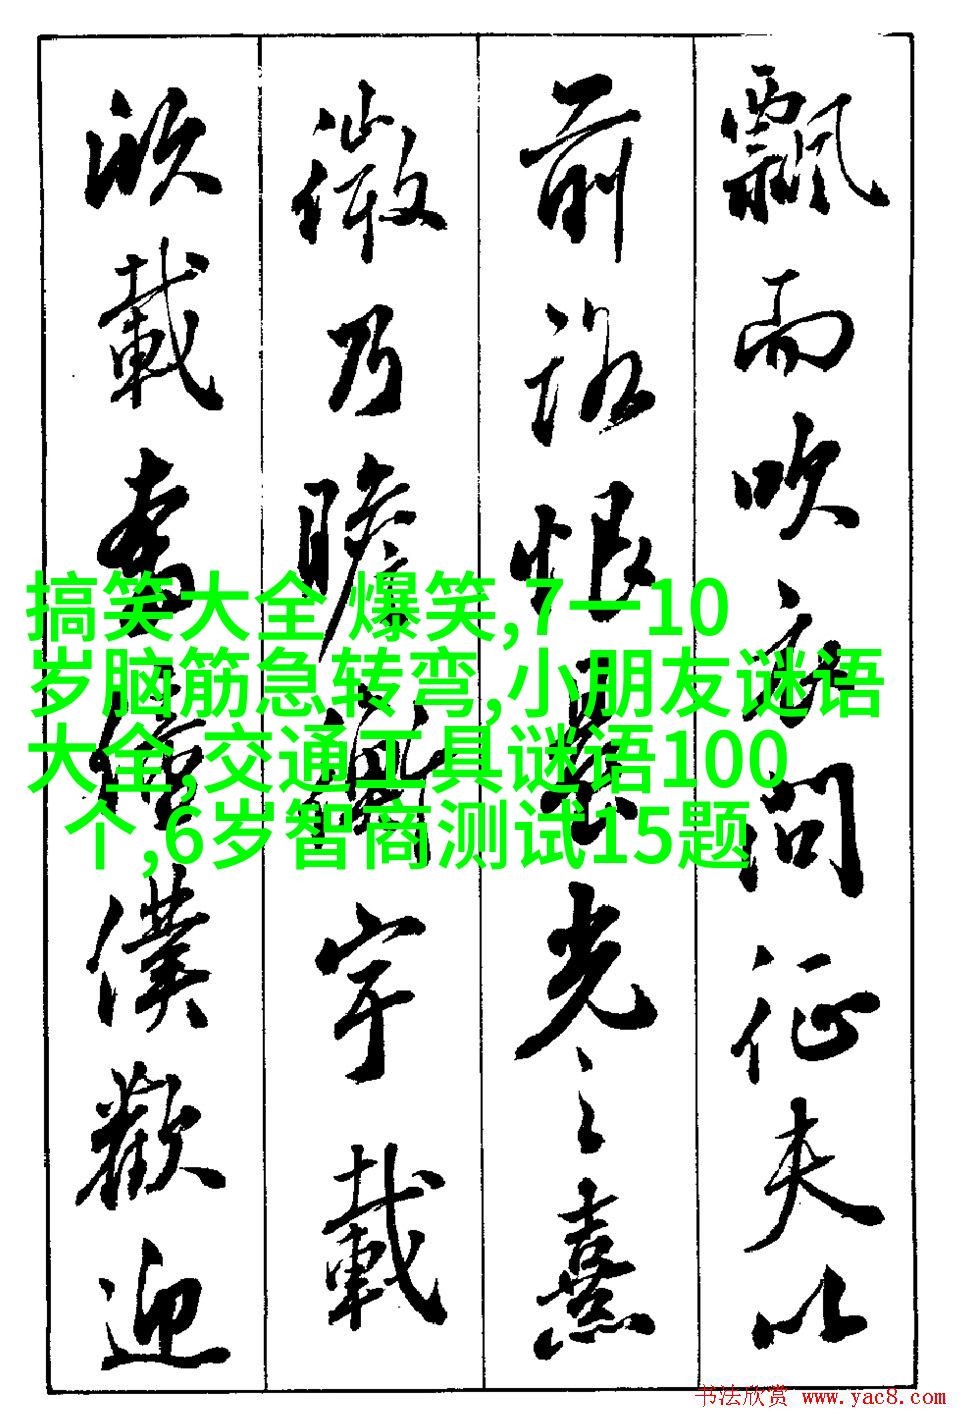 飄而吹衣問征夫以
前路恨晨光之熹
微乃瞻衡宇載
欣載奔僮僕歡迎
搞笑大全 爆笑,7一10
岁脑筋急转弯,小朋友谜语
大全,交通工具谜语100
个,6岁智商测试15题
书法欣赏 www.yac8.com